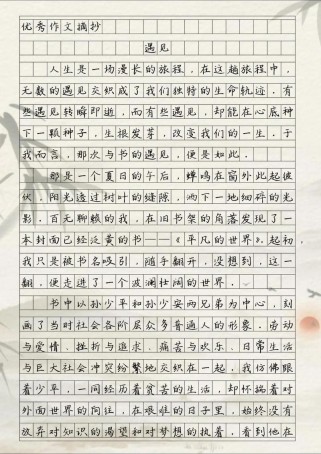 优秀作文摘抄
遇见
人生是一场漫长的旅程，在这趟旅程中，
无数的遇见交织成了我们独特的生命轨迹。有
些遇见转瞬即逝，而有些遇见，却能在心底种
下一颗种子，生根发芽，改变我们的一生。于
我而言，那次与书的遇见，便是如此。
那是一个夏日的午后，蝉鸣在窗外此起彼
伏，阳光透过树叶的缝隙，洒下一地细碎的光
影。百无聊赖的我，在旧书架的角落发现了一
本封面已经泛黄的书——《平凡的世界》。起初，
我只是被书名吸引，随手翻开，没想到，这一
翻，便走进了一个波澜壮阔的世界。
书中以孙少平和孙少安两兄弟为中心，刻
画了当时社会各阶层众多普通人的形象。劳动
与爱情、挫折与追求、痛苦与欢乐、日常生活
与巨大社会冲突纷繁地交织在一起。我仿佛跟
着少平，一同经历着贫苦的生活，却怀揣着对
外面世界的向往，在艰难的日子里，始终没有
放弃对知识的渴望和对梦想的执着。看到他在